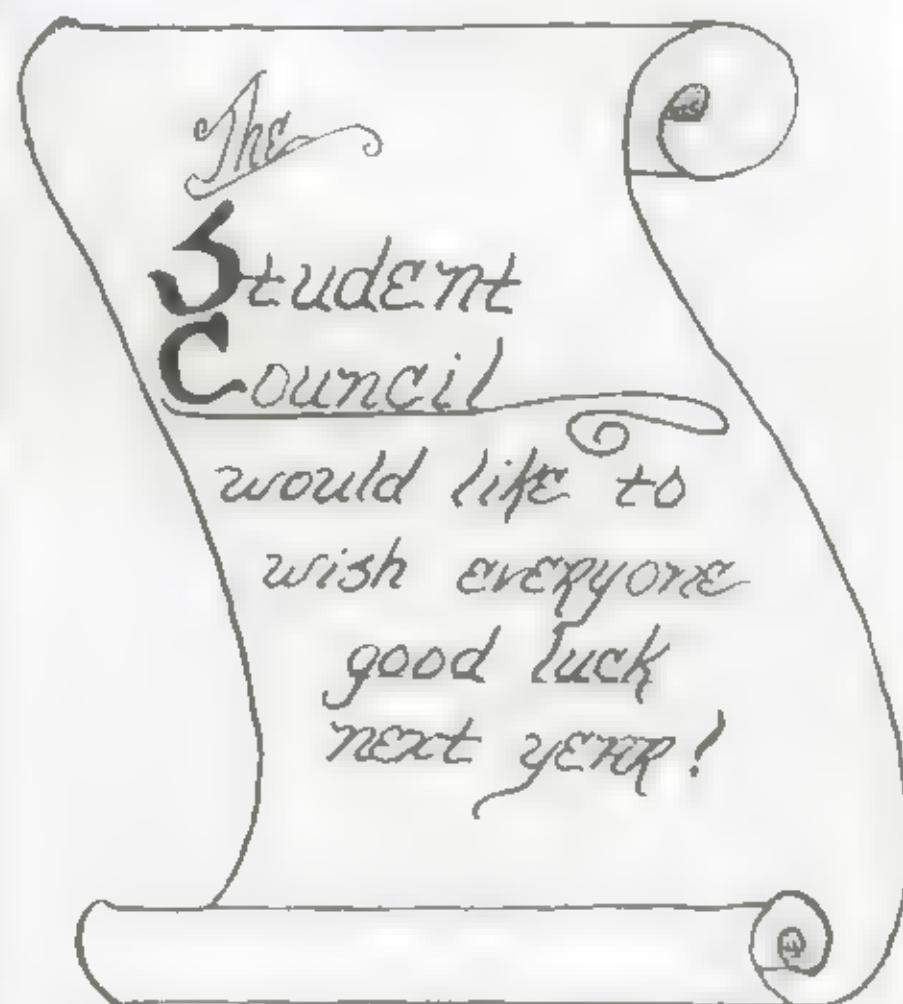 The
Student
Council
would like to
wish everyone
good luck
next year!